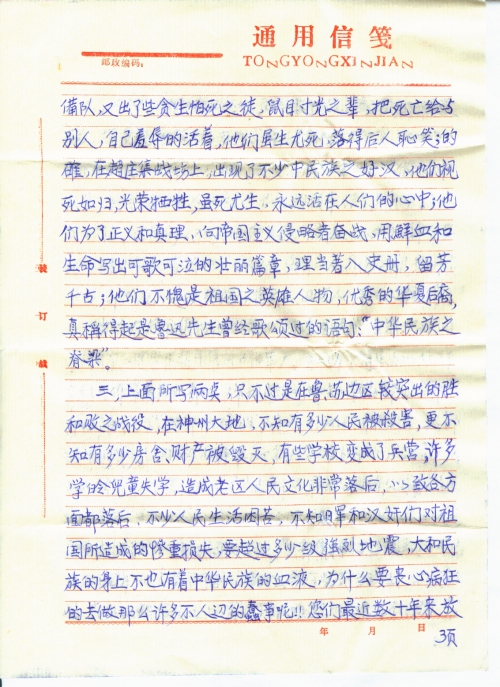 通用信笺
邮政编码:
TONGYONGXINJIAN
备队,又出了些贪生怕死之徒,鼠目寸光之辈,把死亡给与
别人,自己羞辱的活着,他们虽生尤死,落得后人耻笑;的
雄,在赵庄集战场上,出现了不少中民族之好汉,他们视
死如归,光荣牺牲,虽死尤生,永远活在人们的心中;他
们为了正义和真理,向帝国主义侵略者奋战,用鲜血和
生命写出可歌可泣的壮丽篇章,理当著入史册,留芳
千古;他们不愧是祖国之英雄人物,优秀的华夏后裔,
真稱得起是鲁迅先生曾经歌颂过的语句:“中华民族之
脊梁”。
三,上面所写两桌,只不过是在鲁苏边区较突出的胜
和败之战役,在神州大地,不知有多少人民被殺害,更不
知有多少房舍、财产被毁灭,有些学校变成了兵营,许多
学令儿童失学,造成老区人民文化非常落后,以致各方
面都落后,不少人民生活困苦,不知日军和汉奸们对祖
国所造成的惨重损失,要超过多少级强烈地震,大和民
族的身上不也有着中华民族的血液,为什么要丧心病狂
的去做那么许多不人边的蠢事呢!!您们最近数十年来放
装
订
线
年 月 日
3页